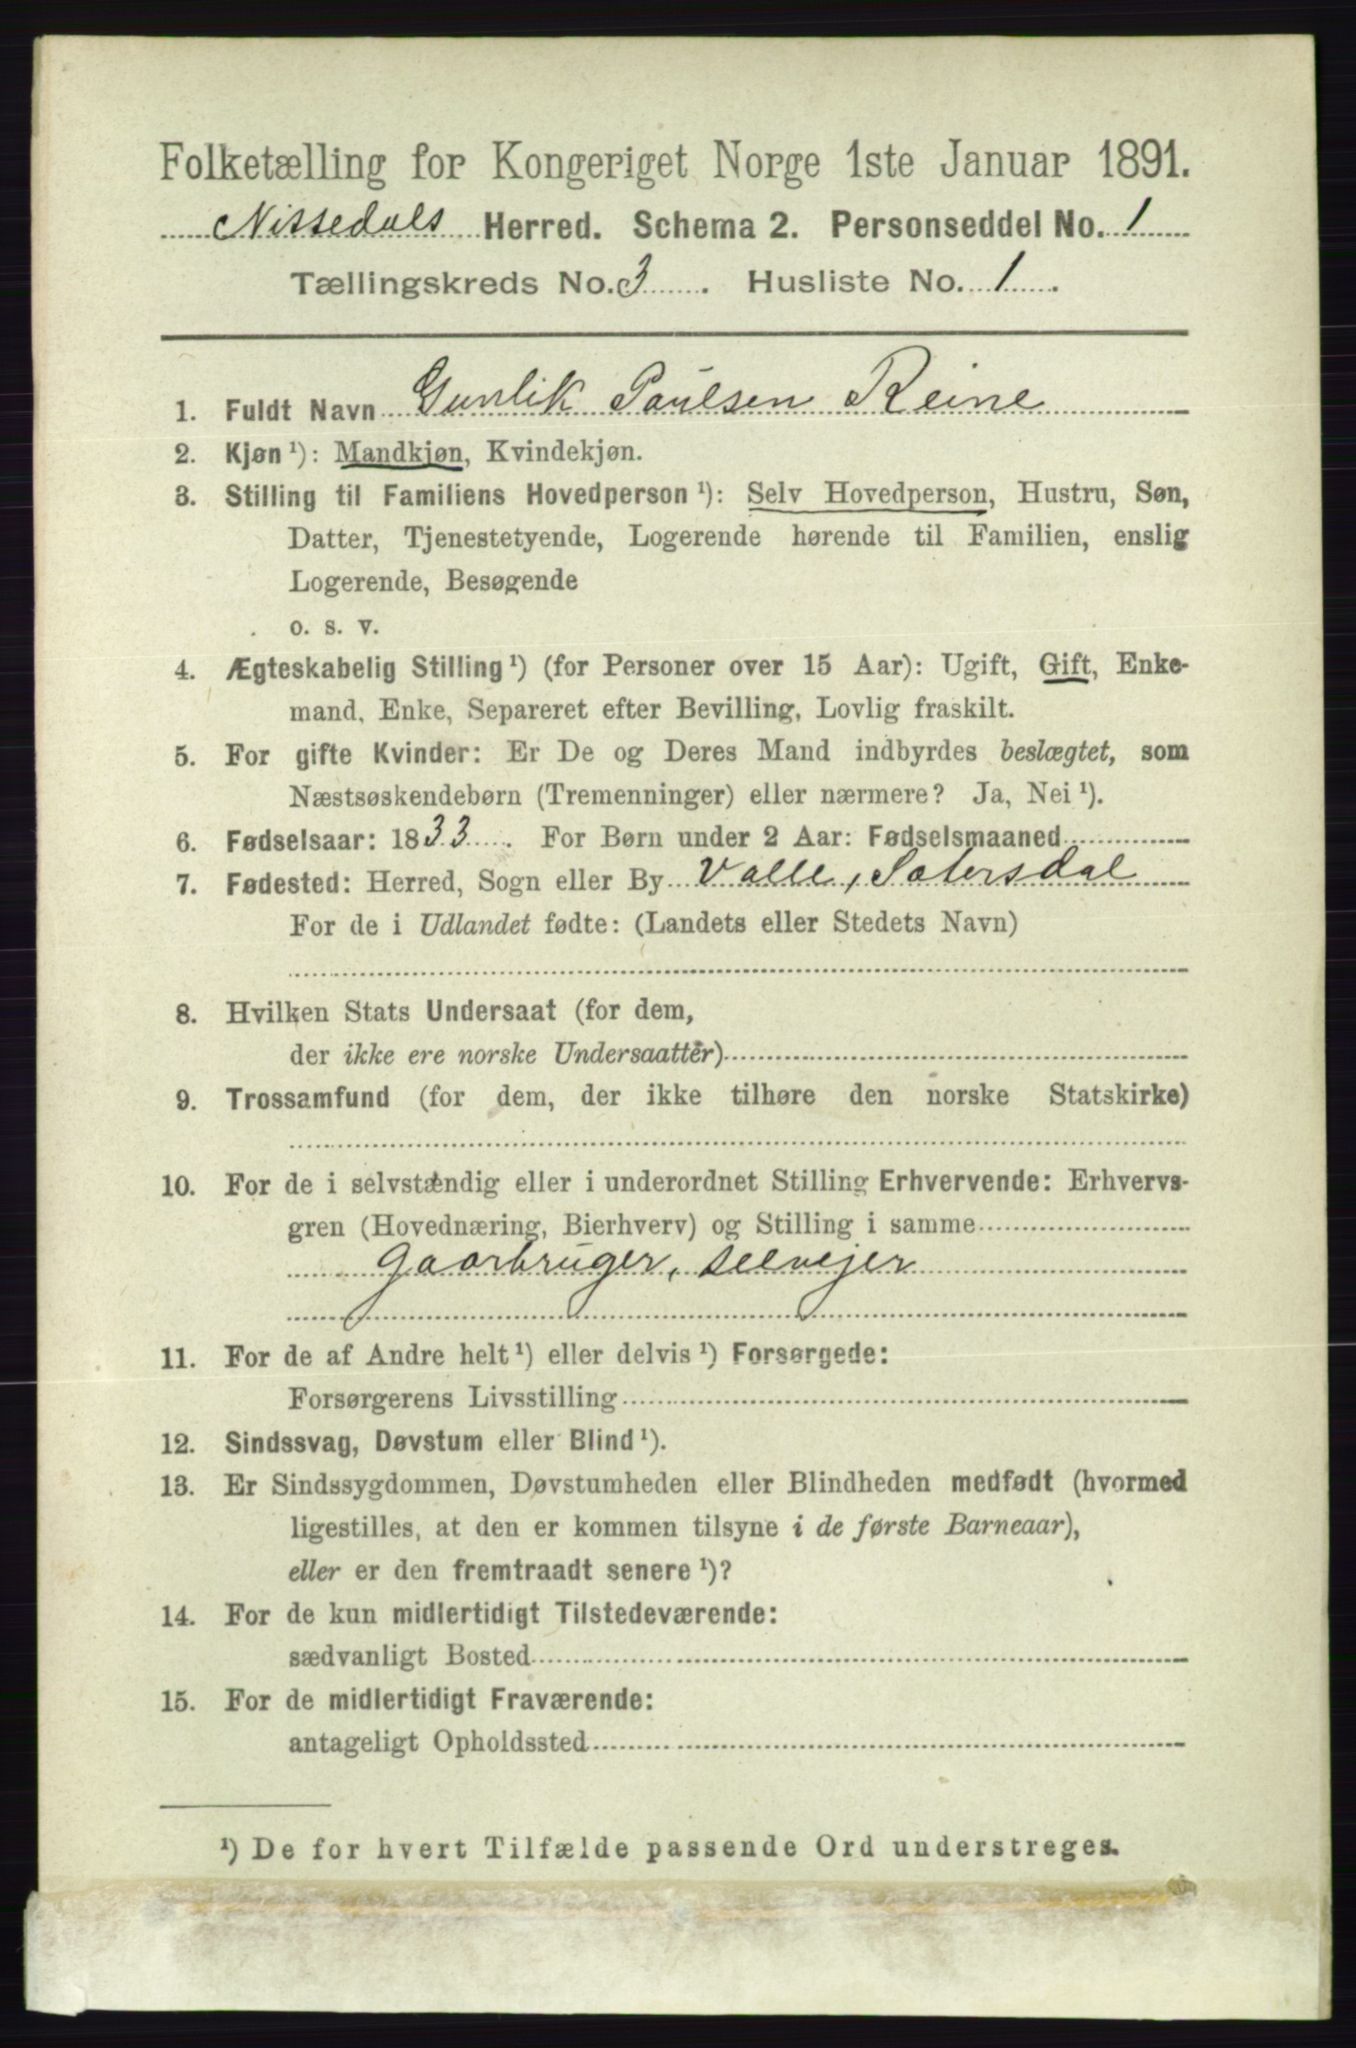 Folketælling for Kongeriget Norge 1ste Januar 1891.
Nissedals Herred. Schema 2. Personseddel No. 1
Tællingskreds No. 3. Husliste No. 1.
1. Fuldt Navn Gunlik Paulsen Reine
2. Kjøn ¹): Mandkjøn, Kvindekjøn.
3. Stilling til Familiens Hovedperson ¹): Selv Hovedperson, Hustru, Søn,
Datter, Tjenestetyende, Logerende hørende til Familien, enslig
Logerende, Besøgende
o. s. v.
4. Ægteskabelig Stilling ¹) (for Personer over 15 Aar): Ugift, Gift, Enke-
mand, Enke, Separeret efter Bevilling, Lovlig fraskilt.
5. For gifte Kvinder: Er De og Deres Mand indbyrdes beslægtet, som
Næstsøskendebørn (Tremenninger) eller nærmere? Ja, Nei ¹).
6. Fødselsaar: 1833. For Børn under 2 Aar: Fødselsmaaned
7. Fødested: Herred, Sogn eller By Valle, Sætersdal
For de i Udlandet fødte: (Landets eller Stedets Navn)
8. Hvilken Stats Undersaat (for dem,
der ikke ere norske Undersaatter)
9. Trossamfund (for dem, der ikke tilhøre den norske Statskirke)
10. For de i selvstændig eller i underordnet Stilling Erhvervende: Erhvervs-
gren (Hovednæring, Bierhverv) og Stilling i samme
Gaarbruger, selvejer
11. For de af Andre helt ¹) eller delvis ¹) Forsørgede:
Forsørgerens Livsstilling
12. Sindssvag, Døvstum eller Blind ¹).
13. Er Sindssygdommen, Døvstumheden eller Blindheden medfødt (hvormed
ligestilles, at den er kommen tilsyne i de første Barneaar),
eller er den fremtraadt senere ¹)?
14. For de kun midlertidigt Tilstedeværende:
sædvanligt Bosted
15. For de midlertidigt Fraværende:
antageligt Opholdssted
¹) De for hvert Tilfælde passende Ord understreges.